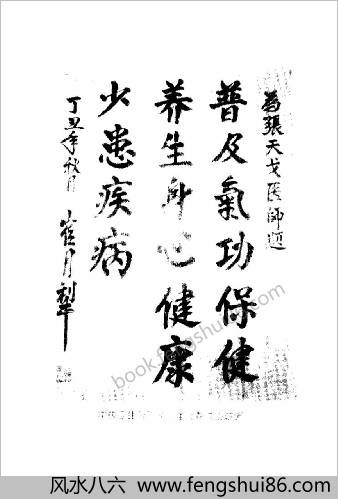 為張天戈医師題
普及氣功保健
养生身心健康
少患疾病
丁丑年秋月
崔月犁
book.fengshui86.com
风水八六 www.fengshui86.com